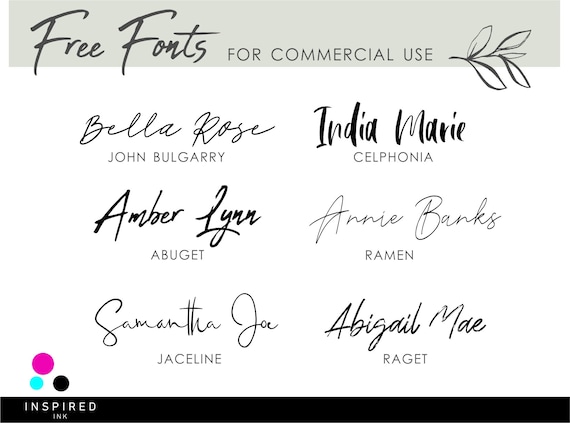 Free Fonts FOR COMMERCIAL USE
Bella Rose
JOHN BULGARRY
India Marie
CELPHONIA
Amber Lynn
ABUGET
Annie Banks
RAMEN
Samantha Joe
JACELINE
Abigail Mae
RAGET
INSPIRED
INK